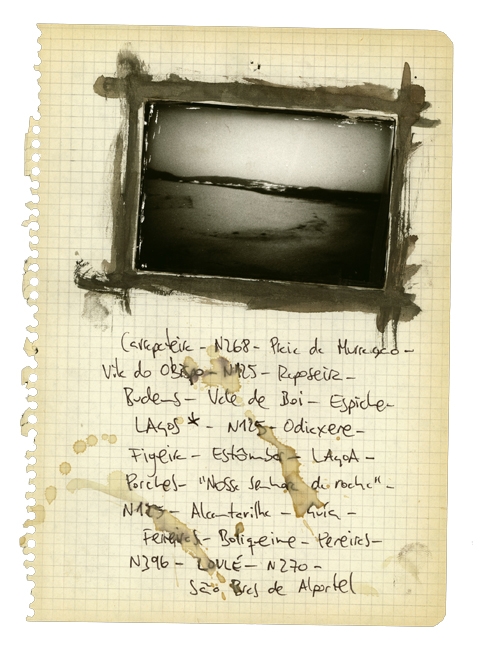 Carrapateira - N268 - Praia do Murração -
Vila do Bispo - N125 - Raposeira -
Budens - Vale de Boi - Espiche -
LAgos * - N125 - Odiaxere -
Figeira - Estômbar - LAgoA -
Porches - "Nossa senhora da rocha" -
N125 - Alcantarilha - Guia -
Ferreiras - Boliqueime - Pereiras -
N396 - LOULÉ - N270 -
São Bras de Alportel